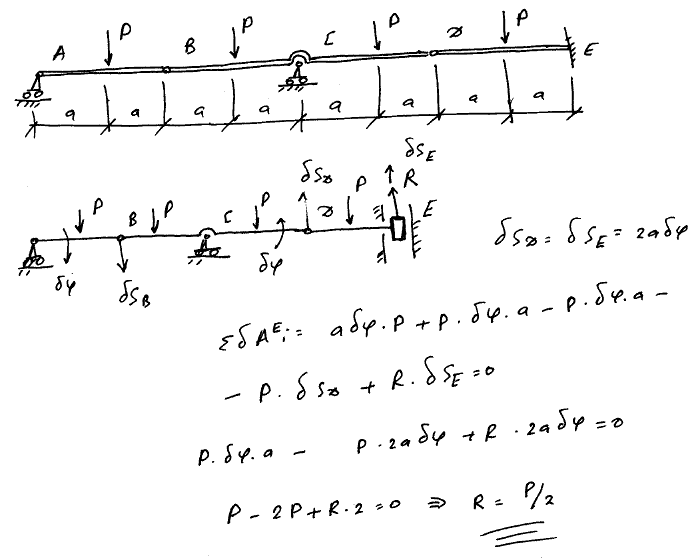 A P B P C P D P E
a a a a a a a a
δS_D δS_E
P B P C P D P R E
δφ δS_B δφ
δS_D = δS_E = 2aδφ
ΣδA^E_i = aδφ·P + P·δφ·a − P·δφ·a −
− P·δS_D + R·δS_E = 0
P·δφ·a − P·2aδφ + R·2aδφ = 0
P − 2P + R·2 = 0 ⇒ R = P/2